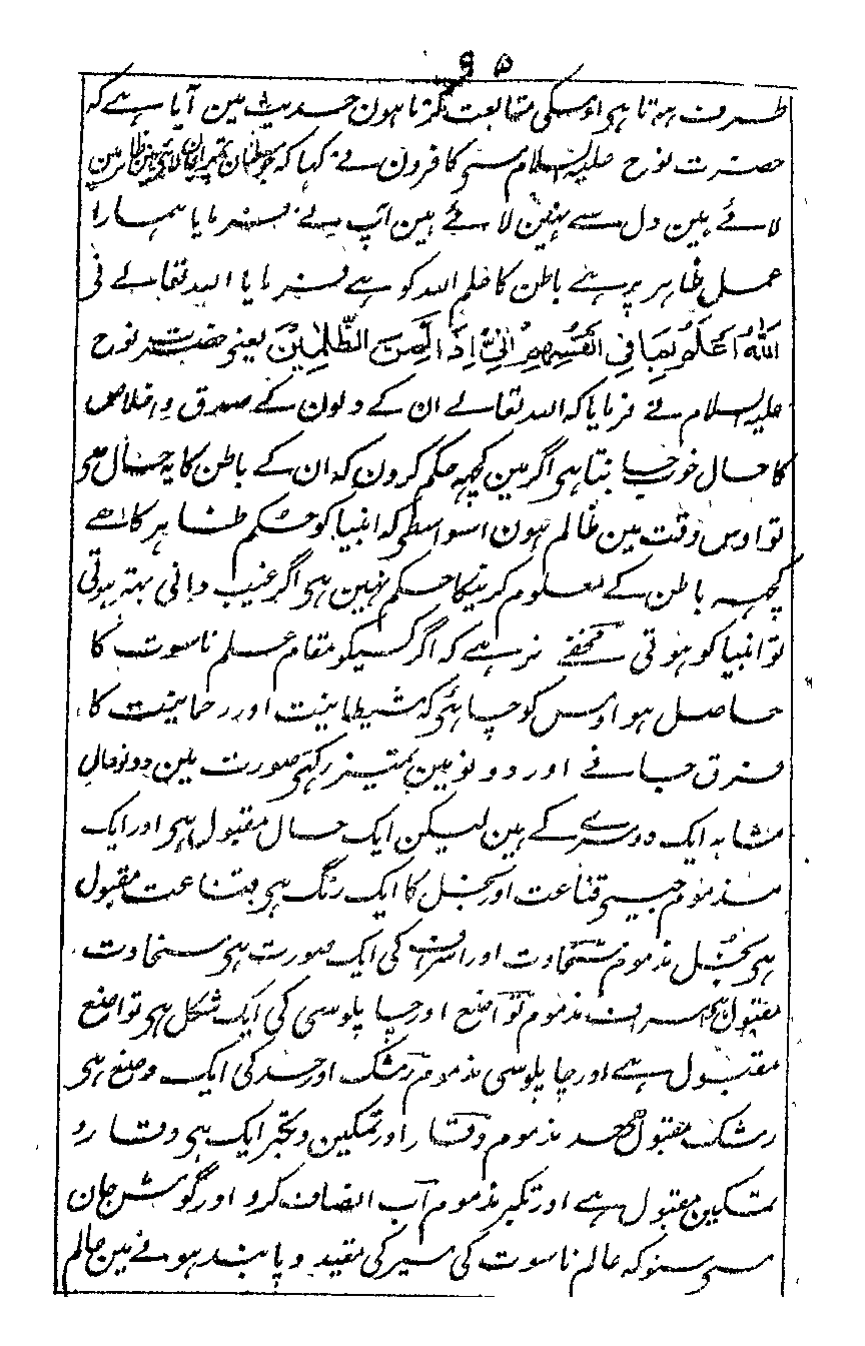 ۹۵
طرف ہوتا ہی اوسکی متابعت کرتا ہون حدیث مین آیا ہے کہ
حضرت نوح علیہ السلام سی کافرون نے کہا کہ جو مسلمان تمپر ایمان لائی ہین ظاہر مین
لائے ہین دل سے نہین لائے ہین آپ نے فرمایا ہمارا
عمل ظاہر پر ہے باطن کا علم اللہ کو ہے فرمایا اللہ تعالے نی
اَللّٰهُ اَعْلَمُ بِمَا فِي اَنْفُسِهِمْ اِنِّيْ اِذًا لَّمِنَ الظّٰلِمِيْنَ یعنی حضرت نوح
علیہ السلام نے فرمایا کہ اللہ تعالے ان کے دلون کے صدق و اخلاص
کا حال خوب جانتا ہی اگر مین کچہہ حکم کرون کہ ان کے باطن کا یہ حال ہی
تو اوس وقت مین ظالم ہون اسواسطی کہ انبیا کو حکم ظاہر کا ہے
کچہہ باطن کے معلوم کرنیکا حکم نہین ہی اگر غیب دانی بہتر ہوتی
تو انبیا کو ہوتی مخفے نرہے کہ اگر کسیکو مقام علم ناسوت کا
حاصل ہو اوس کو چاہئی کہ شیطانیت اور رحمانیت کا
فرق جانے اور دونو مین تمیز رکہی صورت مین دونو حال
مشابہ ایک دوسرے کے ہین لیکن ایک حال مقبول ہی اور ایک
مذموم جیسی قناعت اور بخل کا ایک رنگ ہی قناعت مقبول
ہی بخل مذموم سخاوت اور اسراف کی ایک صورت ہی سخاوت
مقبول ہی اسراف مذموم تواضع اور چاپلوسی کی ایک شکل ہی تواضع
مقبول ہے اور چاپلوسی مذموم رشک اور حسد کی ایک وضع ہی
رشک مقبول ہی حسد مذموم وقار اور تمکین و تکبر ایک ہی وقار و
تمکین مقبول ہے اور تکبر مذموم اب انصاف کرو اور گوش جان
سی سنو کہ عالم ناسوت کی سیر کی مقید و پابند ہونے مین عالم